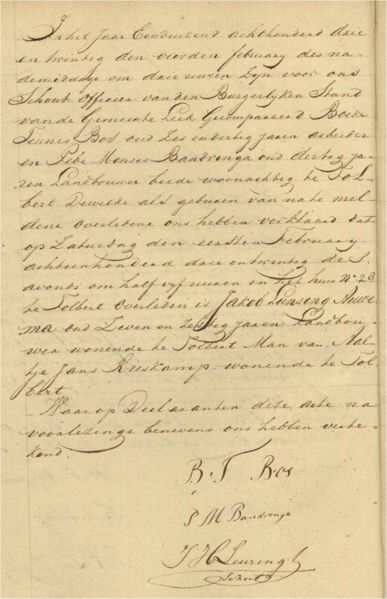 In het Jaar Eenduizend achthonderd drie
en twintig den vierden february des na
demiddags om drie uuren zijn voor ons
Schout Officier van den Burgerlyken Stand
van de Gemeente Leek Gecompareerd Boele
Teunes Bos oud Zes en dertig jaren arbeider
en Pebe Menses Bandringa oud dertig ja
ren Landbouwer beede woonachtig te Tol
bert Dewelke als gebuiren van nabe mel
dene Overledene ons hebben verklaard dat
op Zaturdag den eersten February
achttienhonderd drie en twintig des
avonds om half vyf uuren in het huis No 28
te Tolbert Overleden is Jakob Lunsing Auwe
ma oud Zeven en Zestig Jaren Landbou
wer wonende te Tolbert Man van Aal
tje Jans Ruskamp wonende te Tol
bert
Waar op Declaranten deze acte na
voorlezinge benevens ons hebben vertee
kend.
B. T Bos
P M Bandringa
J H Leuringh
Schout